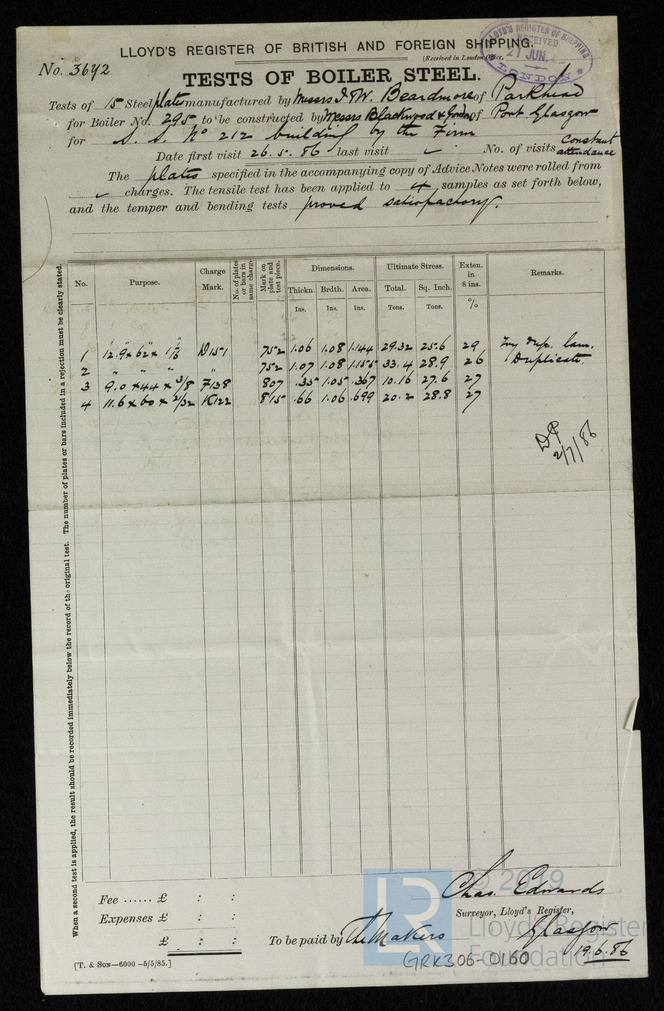 LLOYD'S REGISTER OF BRITISH AND FOREIGN SHIPPING.
No. 3642
(Received in London Office,
LLOYD'S REGISTER OF SHIPPING
RECEIVED
21 JUN.
LONDON
TESTS OF BOILER STEEL.
Tests of 15 Steel plates manufactured by Messrs I & W. Beardmore of Parkhead
for Boiler No. 295 to be constructed by Messrs Blackwood & Gordon of Port Glasgow
for S. S. No 212 building by the Firm
Date first visit 26.5.86 last visit ✓ No. of visits Constant attendance
The plates specified in the accompanying copy of Advice Notes were rolled from
✓ charges. The tensile test has been applied to 4 samples as set forth below,
and the temper and bending tests proved satisfactory.
No. Purpose. Charge Mark. No. of plates or bars in same charge Mark on plate and test piece. Dimensions. Ultimate Stress. Exten. in 8 ins. Remarks.
Thickn. Brdth. Area. Total. Sq. Inch.
Ins. Ins. Ins. Tons. Tons. %
1 D151 752 1.06 1.08 1.144 29.32 25.6 29
2 " " " " 752 1.07 1.08 1.155 33.4 28.9 26 Duplicate.
3 9.0 x 44 x 3/8 F138 807 .35 1.05 .367 10.16 27.6 27
4 11.6 x 60 x 21/32 K122 815 .66 1.06 .699 20.2 28.8 27
2/7/86
When a second test is applied, the result should be recorded immediately below the record of the original test. The number of plates or bars included in a rejection must be clearly stated.
Fee ...... £ : :
Expenses £ : :
£ : :
Chas. Edwards
Surveyor, Lloyd's Register,
To be paid by The Makers Glasgow
19.6.86
GRK306-0160
[T. & SON—6000 —5/5/85.]
LR © 2019
Lloyd's Register
Foundation